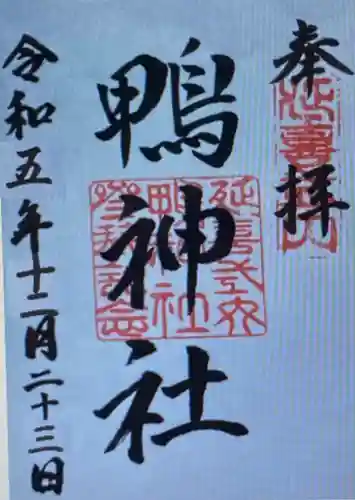 奉拝
鴨神社
令和五年十二月二十三日